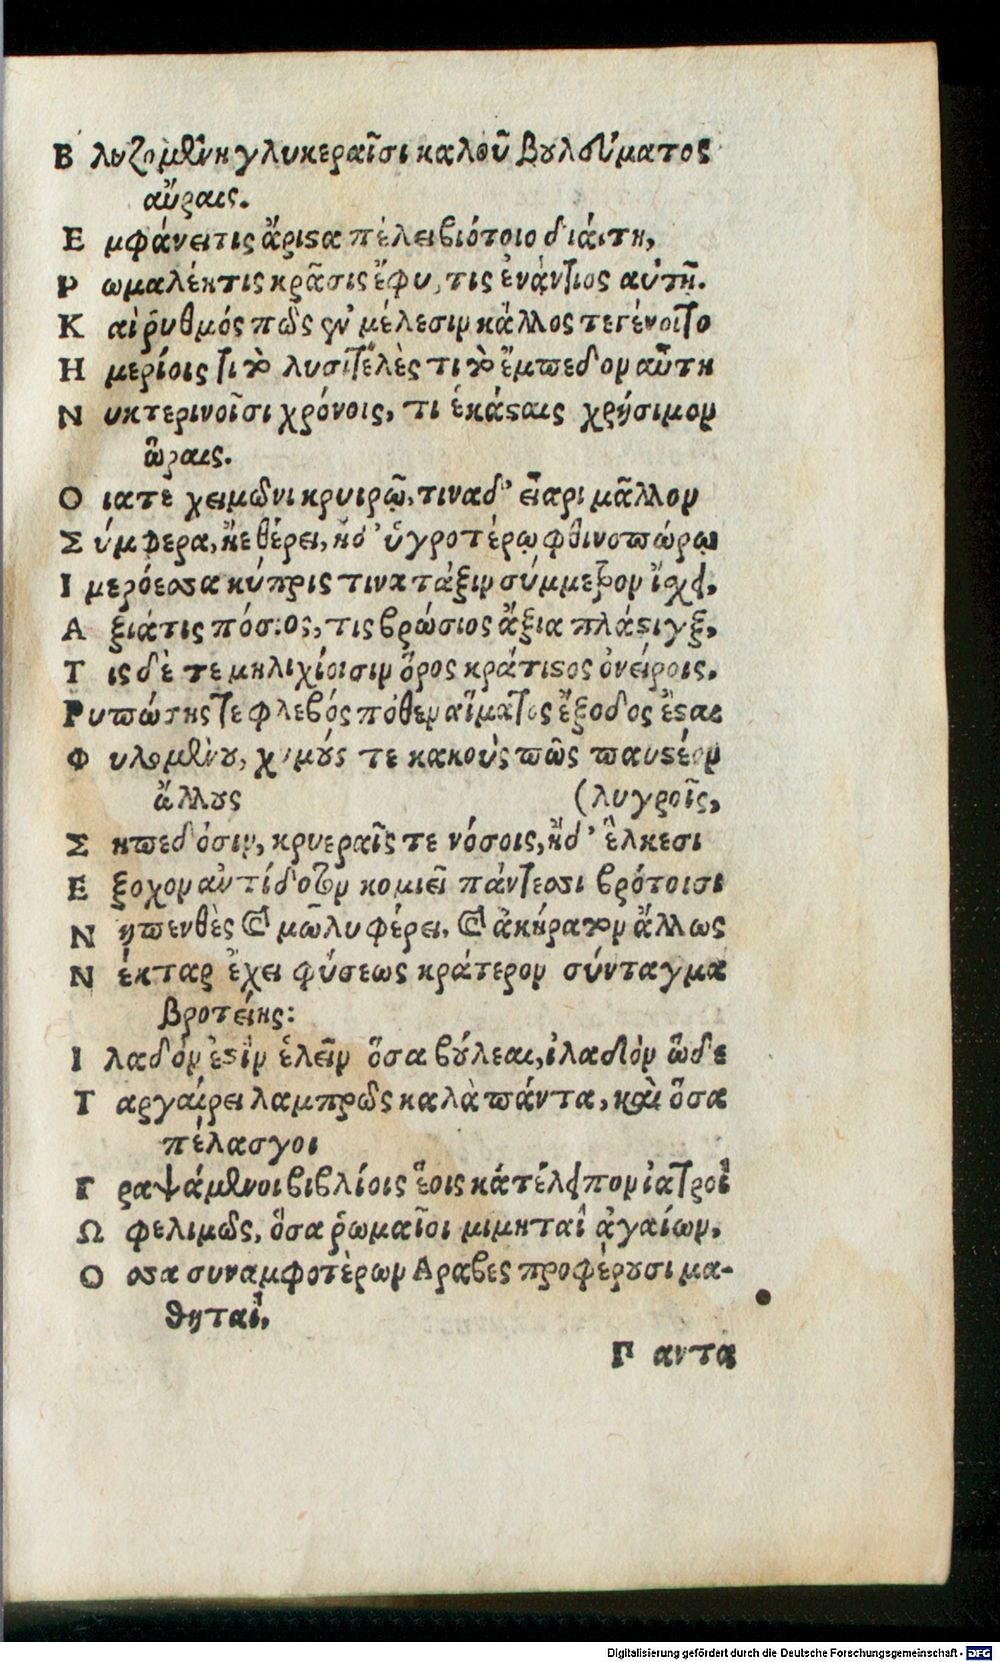 Β λυζομένη γλυκεραῖσι καλοῦ βουλεύματος
αὔραις.
Ε μφάνει τις ἄριστα πέλει βιότοιο διάιτη,
Ρ ωμαλέη τις κρᾶσις ἔφυ, τις ἐνάντιος αὐτῆ.
Κ αὶ ῥυθμός πῶς ἐν μέλεσιν κάλλος τε γένοιτο
Η μερίοις τι το λυσιτελὲς τι το ἔμπεδον αὖτη
Ν υκτερινοῖσι χρόνοις, τι ἑκάσταις χρήσιμον
ὥραις.
Ο ια τε χειμῶνι κρυιρῷ, τινα δ' εἴαρι μᾶλλον
Σ ύμφερα, ἠε θέρει, ἠδ' ὑγροτέρῳ φθινοπώρῳ
Ι μερόεσσα κύπρις τινα τάξιν σύμμετρον ἴσχει,
Α ξιά τις πόσιος, τις βρώσιος ἄξια πλάστιγξ,
Τ ις δὲ τε μηλιχίοισιν ὅρος κράτιστος ὀνείροις.
Ρ υπώσης τε φλεβός πόθεν αἵματος ἔξοδος ἔσται
Φ υλομένου, χυμούς τε κακοὺς πῶς παυστέον
ἄλλους (λυγροῖς,
Σ ηπεδόσιν, κρυεραῖς τε νόσοις, ἠδ' ἕλκεσι
Ε ξοχον αντίδοτον κομιεῖ πάντεσσι βρότοισι
Ν ηπενθὲς καὶ μῶλυ φέρει, καὶ ἀκήρατον ἄλλως
Ν έκταρ ἔχει φύσεως κράτερον σύνταγμα
βροτείης:
Ι λαδόν ἐστὶν ἑλεῖν ὅσα βούλεαι, ἰλαδὸν ὧδε
Τ αργαίρει λαμπρῶς καλὰ πάντα, καὶ ὅσα
πέλασγοι
Γ ραψάμενοι βιβλίοις ἕοις κάτέλειπον ἰατροὶ
Ω φελιμῶς, ὅσα ῥωμαῖοι μιμηταὶ ἀγαίων,
Ο σσα συναμφοτὲρων Αραβες προφέρουσι μα-
θηταὶ,
Γ αντα
Digitalisierung gefördert durch die Deutsche Forschungsgemeinschaft - DFG